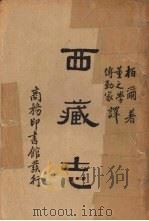 柏爾著
董之學
傅勤家 譯
西藏志
商務印書館發行